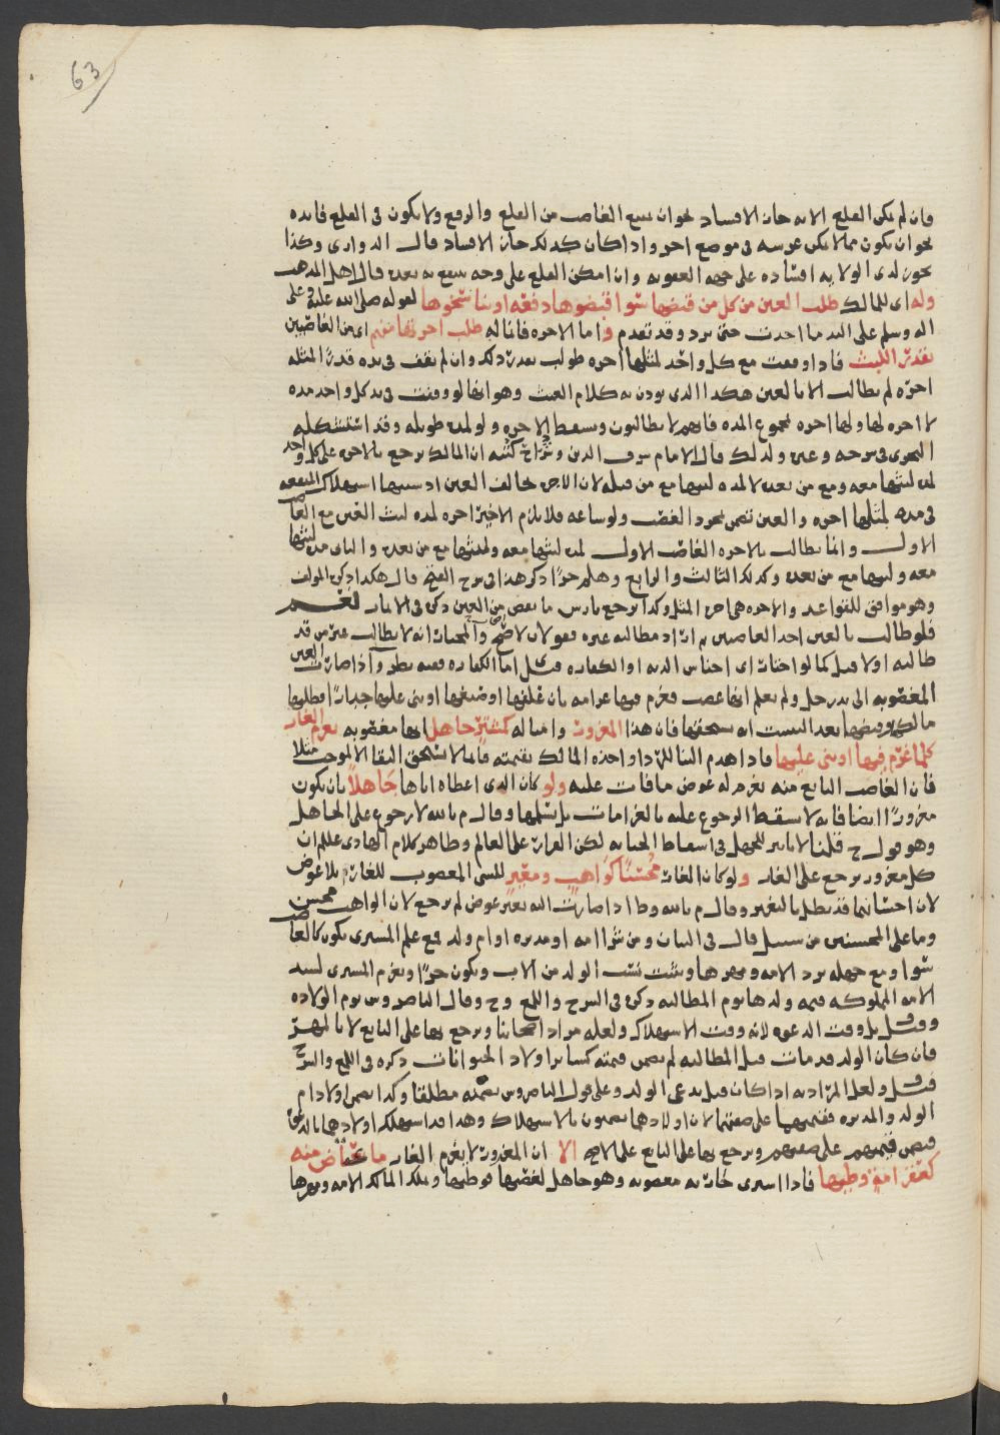 63
فان لم يكن القلع الا به جاز الافساد نحو ان يمتنع الغاصب من القلع والرفع ولا يكون في القلع فائده
نحو ان يكون مما لا يمكن غرسه في موضع اخر واذا كان كذلك جاز الافساد قال الدواري وكذا
يجوز لذي الولايه افساده على جهه العقوبه وان امكن القلع على وجه ينتفع به بعده قال اهل المذهب
وله اي للمالك طلب العين من كل من قبضها سوا قبضوها دفعه او تناسخوها لقوله صلى الله عليه وعلى
اله وسلم على اليد ما اخذت حتى ترد وقد تقدم و اما الاجره فانما له طلب اجرتها منهم اي من الغاصبين
بقدر اللبث فاذا وقعت مع كل واحد لمثلها اجره طولب بقدر ذلك وان لم تقف في يده قدرًا لمثله
اجره لم يطالب الا بالعين هكذا الذي يوذن به كلام الغيث وهو انها لو وقفت في يد كل واحد مده
لا اجره لها ولها اجره لمجموع المده فانهم لا يطالبون وتسقط الاجره ولو لمده طويله وقد استشكله
النجري في شرحه وغيره ولذلك قال الامام شرف الدين وشراح كتبه ان المالك يرجع بالاجره على كل واحد
لمده لبثها معه ومع من بعده لا لمده لبثها مع من قبله لان الاجره تخالف العين اذ سببها استهلاك المنفعه
في مده لمثلها اجره والعين تضمن بمجرد الغصب ولو ساعه فلا يلزم الاخير اجره لمده لبث العين مع الغاصب
الاول وانما يطالب بالاجره الغاصب الاول لمده لبثها معه ولمدتها مع من بعده والثاني مده لبثها
معه ولبثها مع من بعده وكذلك الثالث والرابع وهلم جرًا ذكر هذا في شرح الفتح قال هكذا ذكره المولف
وهو موافق للقواعد والاجره هي اجره المثل وكذا يرجع بارش ما نقص من العين ذكره في الاثمار نعم
فلو طالب بالعين احد الغاصبين ثم اراد مطالبه غيره فقولان لاصحابنا والمختار انه لا يطالب غير من قد
طالبه اولا
المغصوبه الى يد رجل ولم يعلم انها غصب فغرم فيها غرامه بان علفها او صبغها او بنى عليها جدارا فطلبها
مالكها وقبضها بعد البينه انه يستحقها فان هذا المغرور وامثاله كمشترٍ جاهل انها مغصوبه يغرم الغار
كلما غرم فيها او بنى عليها فاذا هدم البنا للرد او اخذه المالك بقيمته قائما لا يستحق البقا الا لموجب مثلا
فان الغاصب البايع منه يغرم له عوض ما فات عليه ولو كان الذي اعطاه اياها جاهلاً بان يكون
مغرورًا ايضا فانه لا يسقط الرجوع عليه بالغرامات بل يسلمها وقال م بالله لا رجوع على الجاهل
وهو قول ح قلنا لا تاثير للجهل في اسقاط الجنايه لكن القرار على العالم وظاهر كلام الهادي عللم ان
كل مغرور يرجع على الغار ولو كان الغار محسنًا كواهب ومعير للشي المغصوب للغارم بلا عوض
لان احسانهما قد بطل بالتغرير وقال م بالله وط اذا صارت اليه بغير عوض لم يرجع لان الواهب محسن
وما على المحسنين من سبيل قال في البيان ومن شرا امه او مدبره او ام ولد فمع علم المشتري يكون كالغاصب
سوا ومع جهله يرد الامه ومهرها ويثبت نسب الولد من الاب ويكون حرًا ويغرم المشتري لسيد
الامه المملوكه قيمه ولدها يوم المطالبه ذكره في الشرح واللمع وح وقال الناصر وش يوم الولاده
وقيل بل وقت الدعوه لانه وقت الاستهلاك ولعله مراد اصحابنا ويرجع بها على البايع لا بالمهر
فان كان الولد قد مات قبل المطالبه لم يضمن قيمته كساير اولاد الحيوانات ذكره في اللمع والشرح
قيل ولعل المراد به اذا كان قبل يدعي الولد وعلى قول الناصر وش يضمنه مطلقا وكذا يضمن اولاد ام
الولد والمدبره فقيمتهما على صفتهما لان اولادهما يضمنون بالاستهلاك وهذا قد استهلك اولادهما بالدعوه
فيضمن قيمتهم على صفتهم ويرجع بها على البايع على الاصح الا ان المغرور لا يغرم الغار ما يعتاض منه
كعقر امةٍ وطيها فاذا اشترى جاريه مغصوبه وهو جاهل لغصبها فوطيها وتلك المالك الامه ومهرها